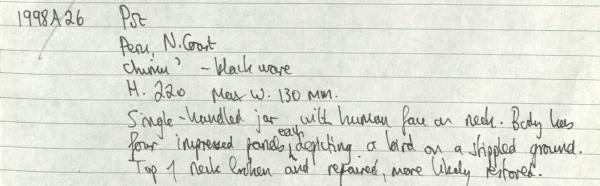 1998A26 Pot
Peru, N. Coast
Chimu' - black ware
H. 220 Max W. 130 mm.
Single-handled jar with human face on neck. Body has
four impressed panels, each depicting a bird on a stippled ground.
Top of neck broken and repaired, more likely restored.